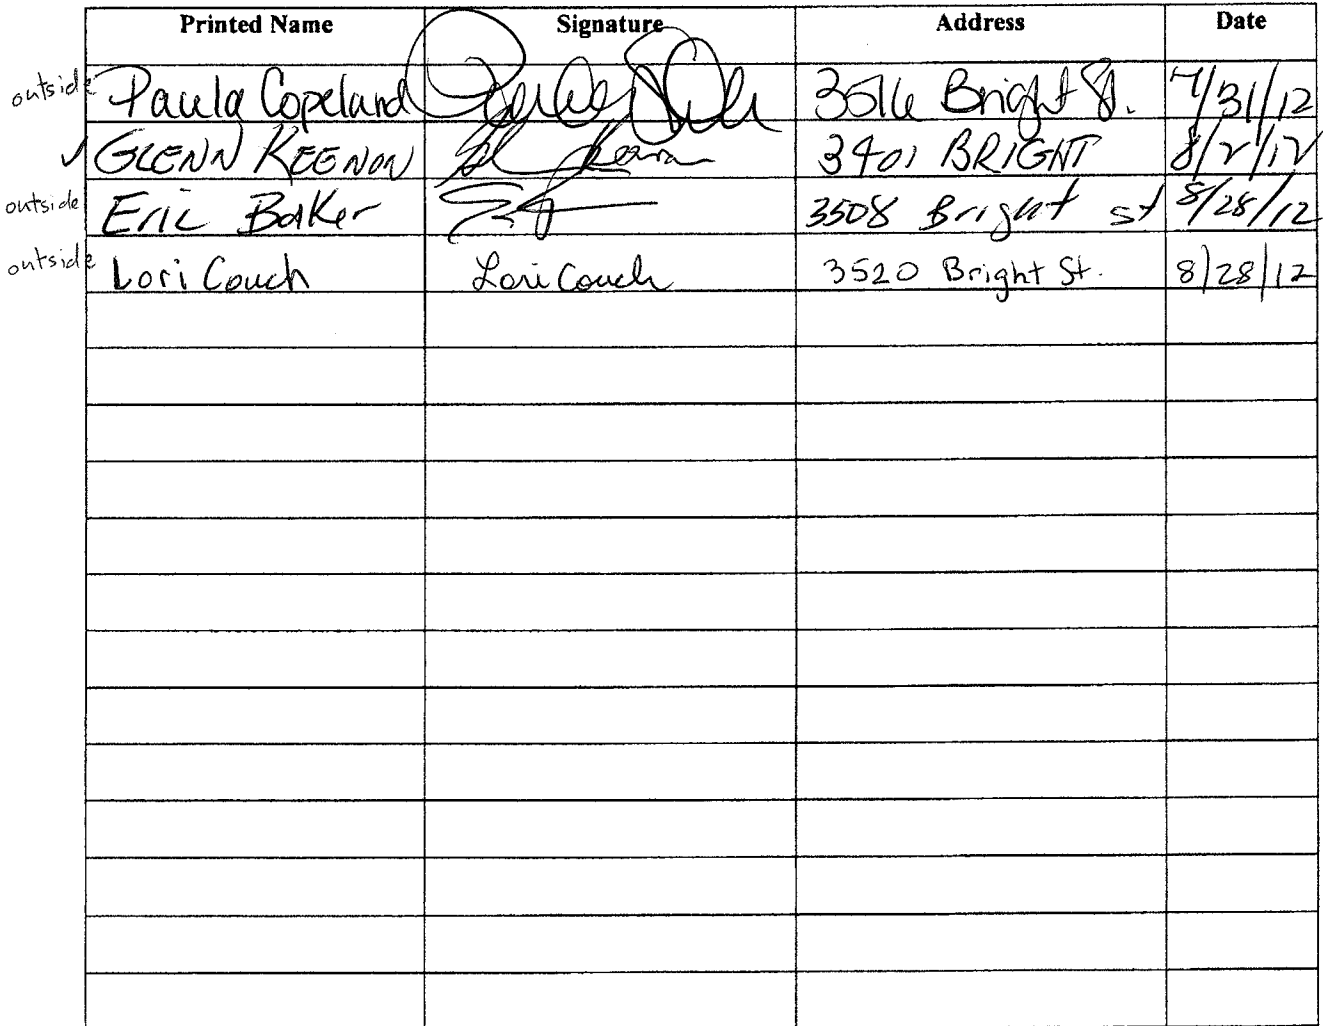 Printed Name Signature Address Date
outside Paula Copeland 3516 Bright St. 7/31/12
✓ GLENN KEENON 3401 BRIGHT 8/2/12
outside Eric Baker 3508 Bright st 8/28/12
outside Lori Couch Lori Couch 3520 Bright St. 8/28/12